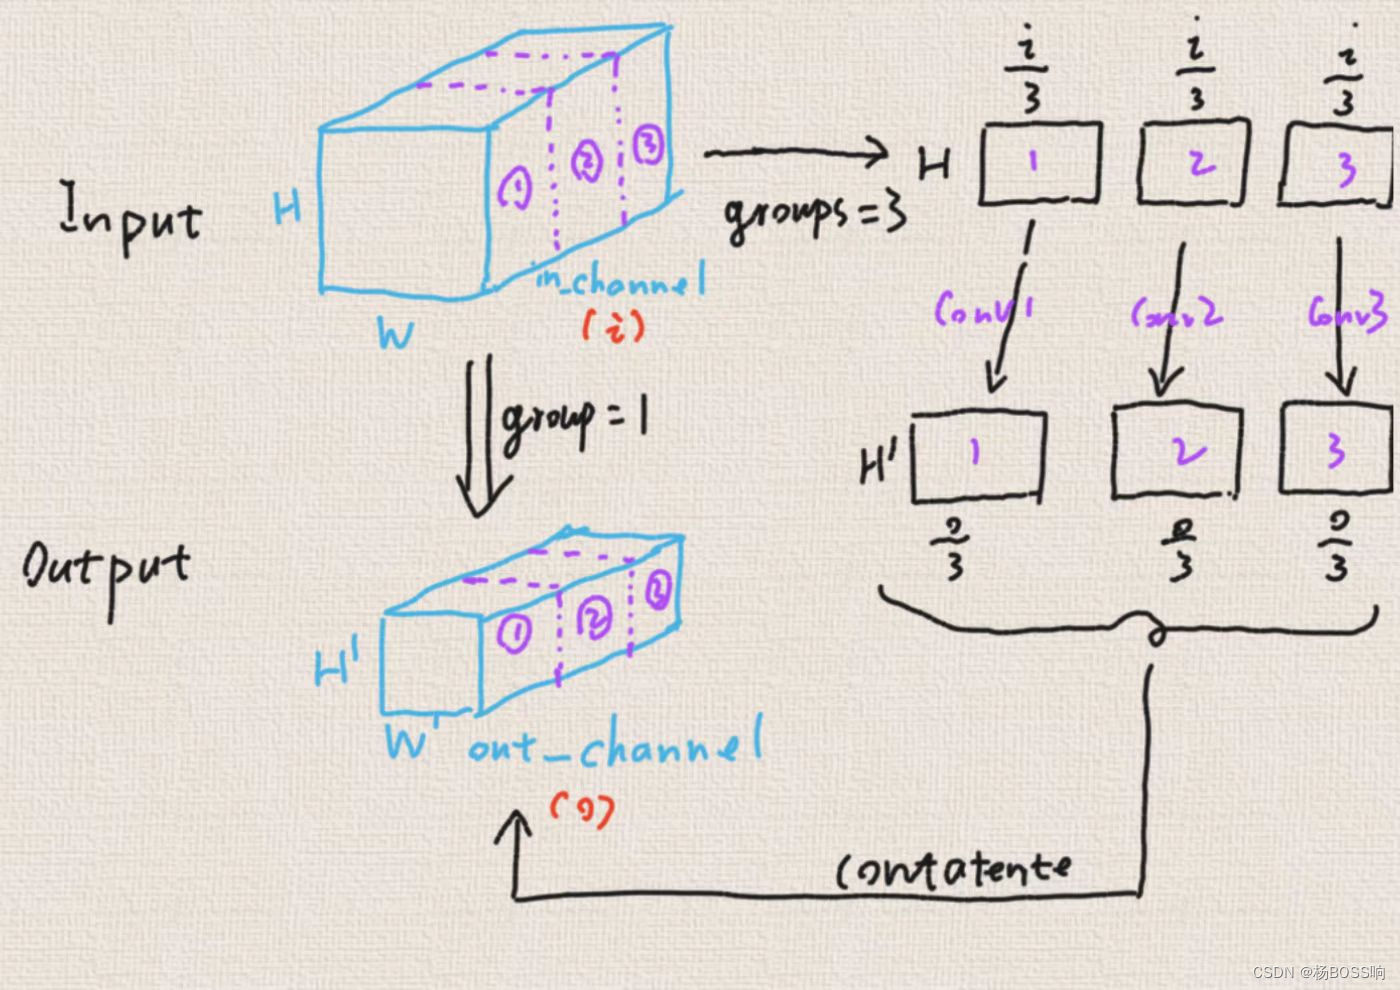 Input
H
W
in_channel
(i)
① ② ③
groups=3
i/3 i/3 i/3
H
1 2 3
Conv1 Conv2 Conv3
group=1
H'
1 2 3
o/3 o/3 o/3
Output
① ② ③
H'
W'
out_channel
(o)
Contatente
CSDN @杨BOSS响